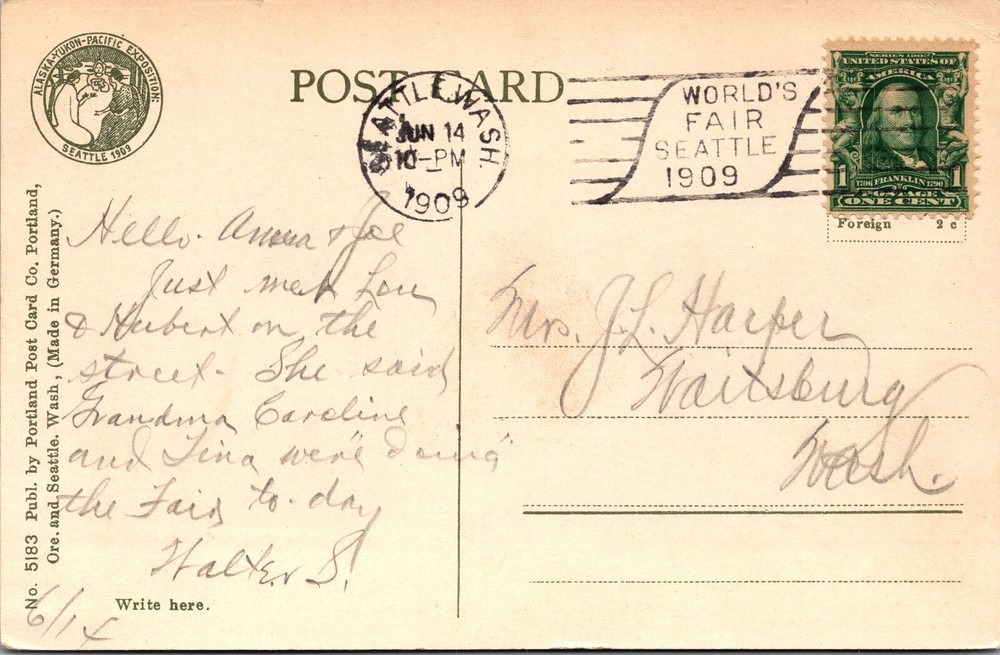 ALASKA-YUKON-PACIFIC EXPOSITION:
SEATTLE 1909
POST CARD
SEATTLE, WASH.
JUN 14
10-PM
1909
WORLD'S
FAIR
SEATTLE
1909
SERIES 1902
UNITED STATES OF
AMERICA
1706 FRANKLIN 1790
1 POSTAGE 1
ONE CENT
Foreign 2 c
No. 5183 Publ. by Portland Post Card Co. Portland,
Ore. and Seattle. Wash, (Made in Germany.)
Hello. Anna & Joe
Just met Lou
& Hubert on the
street. She said
Grandma Caroline
and Tina were "doing"
the Fair to-day
Walter S.
6/14
Write here.
Mrs. J.L. Harper
Waitsburg
Wash.